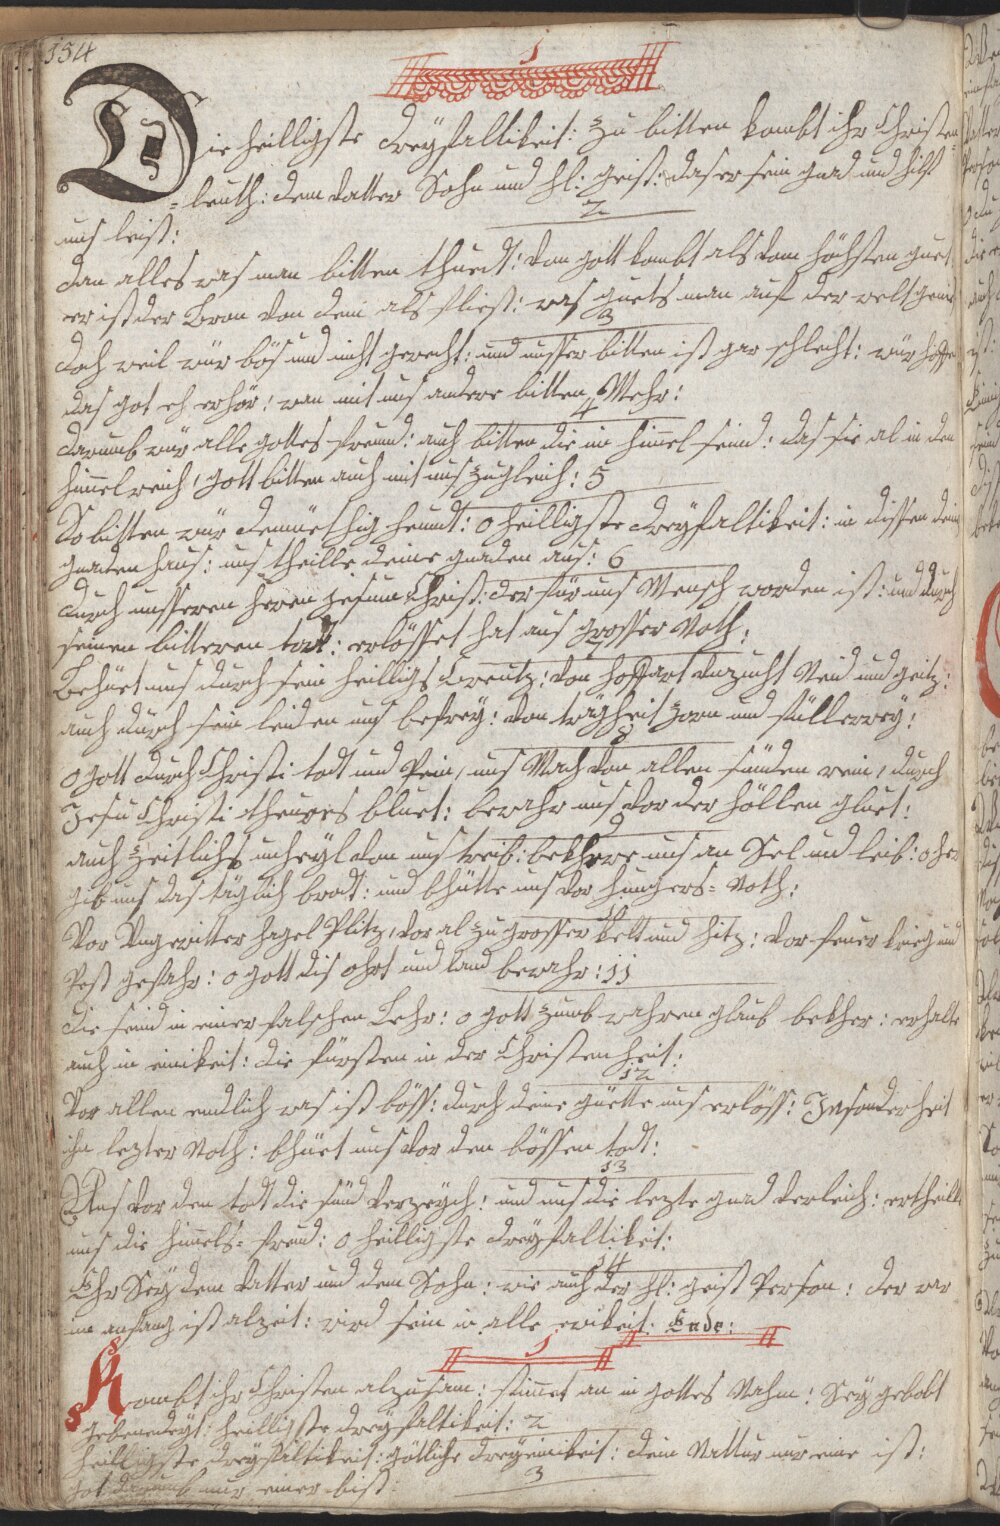 154
1
Die heilligste Dreyfaltikeit: zu bitten kombt ihr Christen=
=leuth: dem Vatter Sohn und hl: geist: das er sein gnad und hilf
uns leist:
2
Dan alles was man bitten thuedt: Von gott kombt als Vom höchsten guet
er ist der Bron Von dem als fliest: was guets man auf der welt geniest
3
Doch weil wür bös und nicht gerecht: und unsser bitten ist gar schlecht: wür hoffen
das got eh erhör: wan mit uns andere bitten Mehr:
4
Darumb wür alle gottes freund: auch bitten die im himel seind: das sie al in den
himelreich, gott bitten auch mit uns zugleich: 5
So bitten wür demüethig heundt: o heilligste Dreyfaltikeit: in dissen dein
gnaden haus: uns theille deine gnaden aus: 6
Durch unsseren heren Jesum Christ: der für uns Mensch worden ist: und durch
seinen bitteren todt: erlösset hat aus grosser Noth:
7
Behüet uns durch sein heilligs Creutz: Von hoffart Unzucht Neid und geitz:
auch durch sein leiden uns befrey: Von trägheit zorn und füllerey:
8
o gott durch Christi todt und Pein, uns Mach Von allen sünden rein, durch
Jesu Christi theures bluet: bewahr uns Vor der höllen gluet:
9
auch zeitlichs unheyl Von uns treib: bekhere uns an Sel und leib: o her
gib uns das täglich brodt: und bhütte uns Vor hungers=Noth:
10
Vor Ungewitter hagel Plitz, Vor al zu grosser kelt und hitz: Vor feuer krieg und
Pest gefahr: o gott dis ohrt und land bewahr: 11
die seind in einer falschen Lehr: o gott zumb wahren glaub bekher: erhalte
auch in einikeit: die fürsten in der Christenheit:
12
Vor allen endlich was ist böss: durch deine güette uns erlöss: Insonderheit
ihn lezter Noth: bhüet uns Vor den bössen todt:
13
Uns Vor dem todt die sünd Verzeych: und uns die lezte gnad Verleich: ertheille
uns die himels=freud: o heilligste Dreyfaltikeit:
14
Ehr Sey dem Vatter und dem Sohn: wie auch der hl: geist Person: der war
im anfang ist alzeit: wird sein in alle ewikeit: Ende:
1
Kombt ihr Christen alzusam: stimet an in gottes Nahm: Sey gelobt
gebenedeyt: heilligste Dreyfaltikeit: 2
heilligste Dreyfaltikeit: götliche Dreyeinikeit: dein Nattur nur eine ist:
got darumb nur einer bist:
3